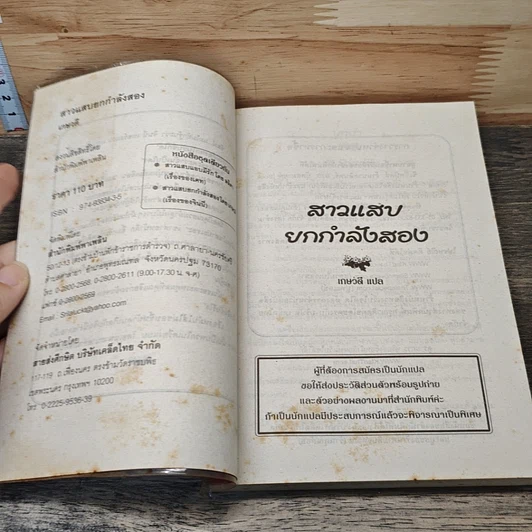 สาวแสบยกกำลังสอง
เกษวลี
สงวนลิขสิทธิ์โดย
สำนักพิมพ์พาเพลิน
ราคา 110 บาท
ISBN :
หนังสือชุดเดียวกัน
(เรื่องของเดท)
จัดพิมพ์โดย
สำนักพิมพ์พาเพลิน
อำเภอพุทธมณฑล จังหวัดนครปฐม 73170
โทร 0-2800-2568 0-2800-2611 (9.00-17.30 น. จ-ศ)
แฟกซ์ 0-2800-2569
จัดจำหน่ายโดย
สายส่งศึกษิต บริษัทเคล็ดไทย จำกัด
117-119 ถ.เฟื่องนคร ตรงข้ามวัดราชบพิธ
เขตพระนคร กรุงเทพฯ 10200
โทร. 0-2225-9536-39
สาวแสบ
ยกกำลังสอง
เกษวลี แปล
ผู้ที่ต้องการสมัครเป็นนักแปล
ขอให้ส่งประวัติส่วนตัวพร้อมรูปถ่าย
และตัวอย่างผลงานมาที่สำนักพิมพ์ค่ะ
ถ้าเป็นนักแปลมีประสบการณ์แล้วจะพิจารณาเป็นพิเศษ
1
2
3